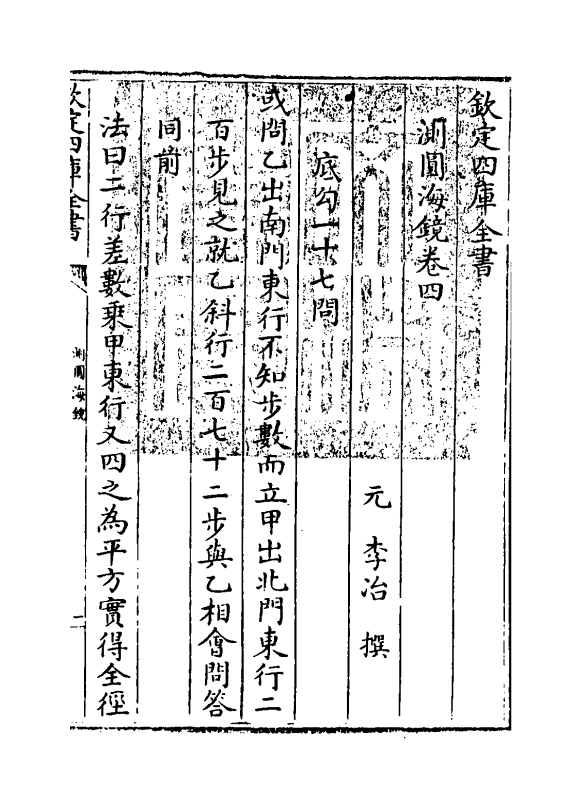 欽定四庫全書
測圓海鏡卷四
元 李冶 撰
底勾一十七問
或問乙出南門東行不知步數而立甲出北門東行二
百步見之就乙斜行二百七十二步與乙相會問答
同前
法曰二行差數乘甲東行又四之為平方實得全徑
欽定四庫全書
測圓海鏡